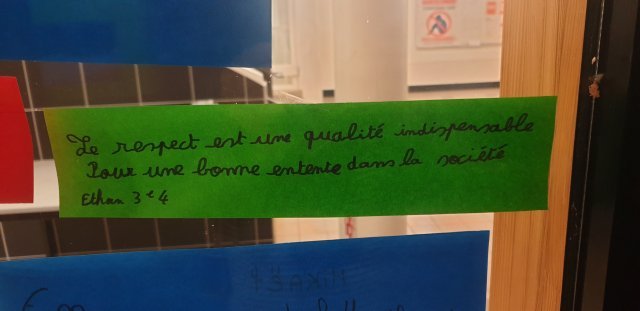 Le respect est une qualité indispensable
Pour une bonne entente dans la société
Ethan 3e4